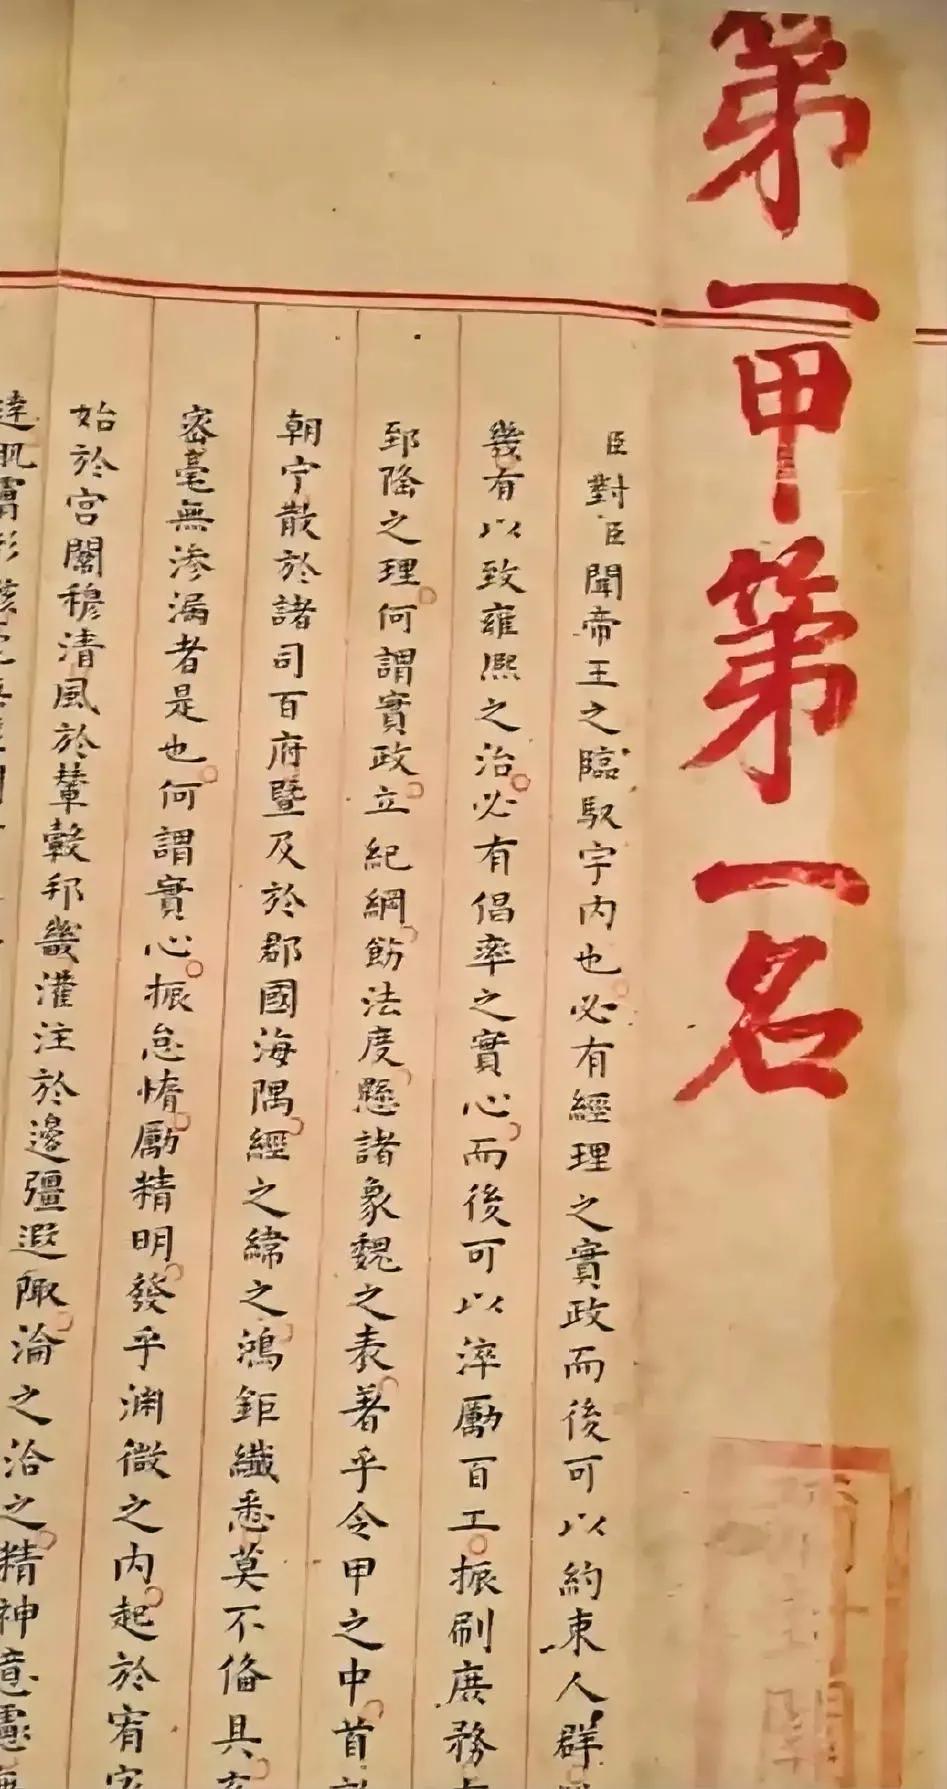 第一甲第一名
臣對臣聞帝王之臨馭宇内也必有經理之實政而後可以約束人群
幾有以致雍熈之治必有倡率之實心而後可以淬勵百工振刷庶務
郅隆之理何謂實政立紀綱飭法度懸諸象魏之表著乎令甲之中首
朝宁散於諸司百府暨及於郡國海隅經之緯之鴻鉅纖悉莫不俻具
宻毫無渗漏者是也何謂實心振怠惰勵精明發乎渊微之内起於宥
始於宫闈穆清風於輦轂邦畿灌注於邊疆遐陬淪之洽之精神意慮
達肌膚形骸